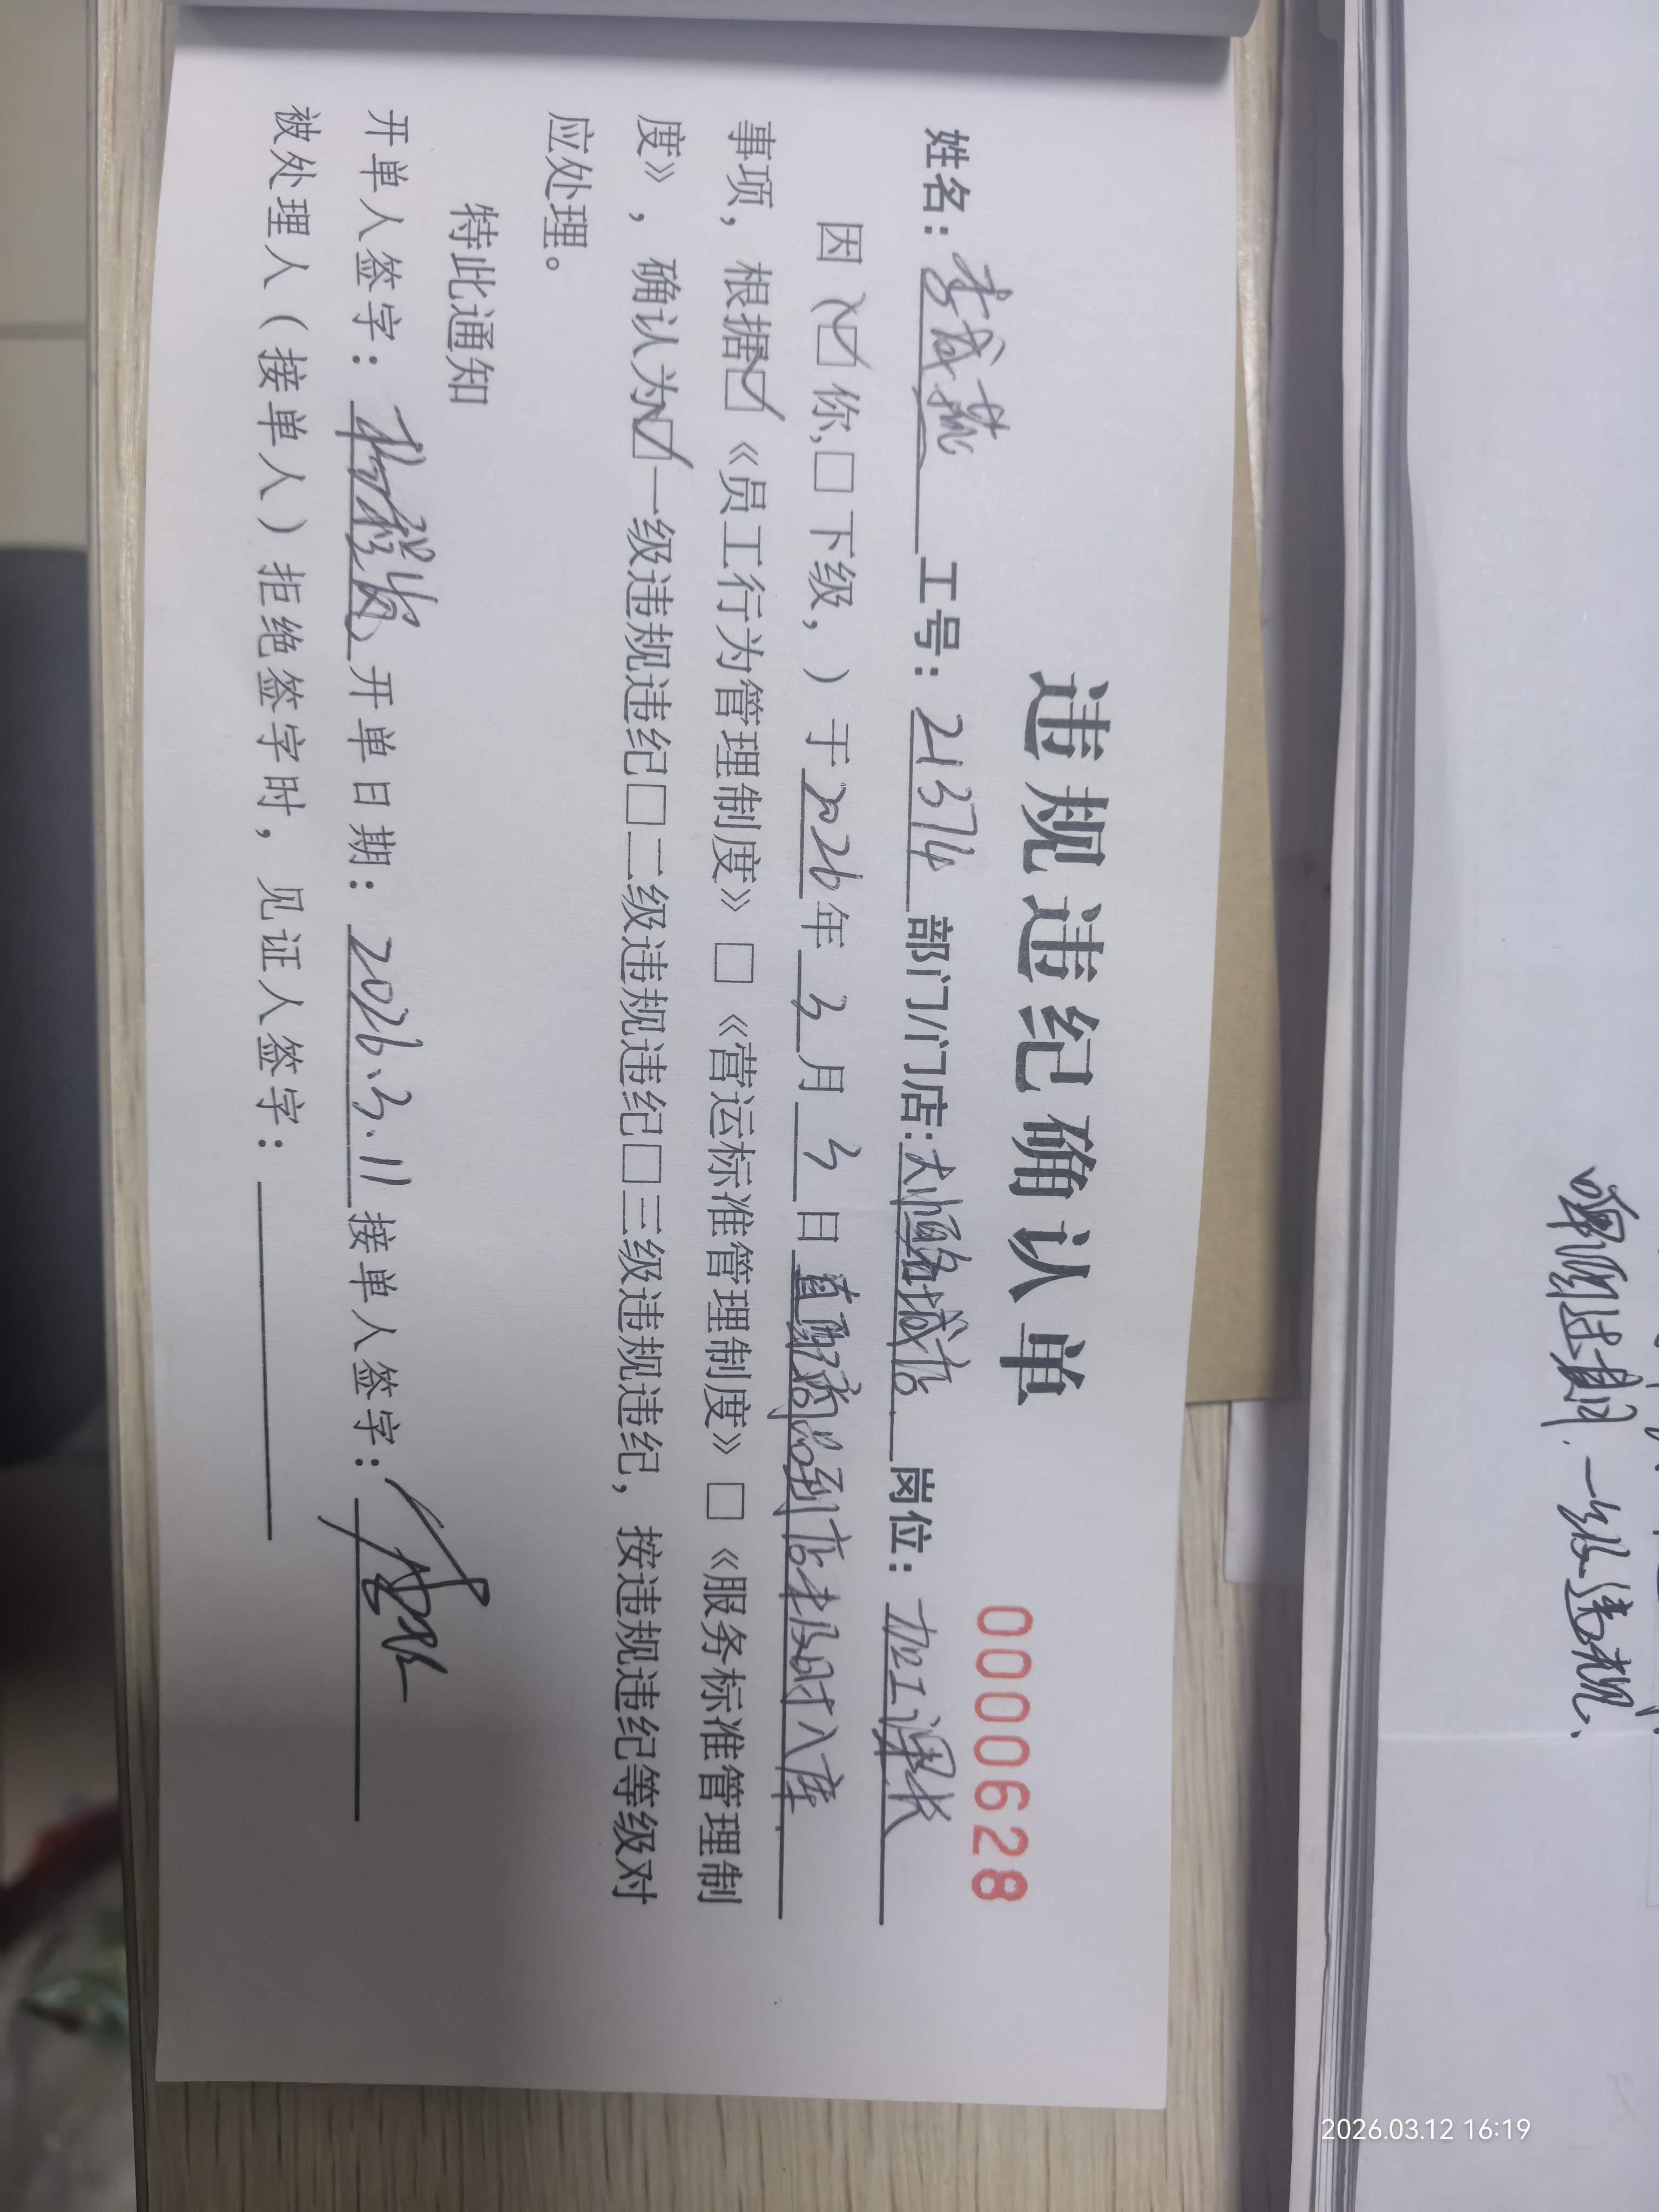 违规违纪确认单
00000628
姓名：李 工号：21374 部门/门店：大 城店 岗位：加工课长
因（☑你，□下级，）于2026年3月3日直配商品到店未及时入库
事项，根据☑《员工行为管理制度》□《营运标准管理制度》□《服务标准管理制
度》，确认为☑一级违规违纪□二级违规违纪□三级违规违纪，按违规违纪等级对
应处理。
特此通知
开单人签字： 开单日期：2026.3.11 接单人签字：
被处理人（接单人）拒绝签字时，见证人签字：
一级违规、
2026.03.12 16:19